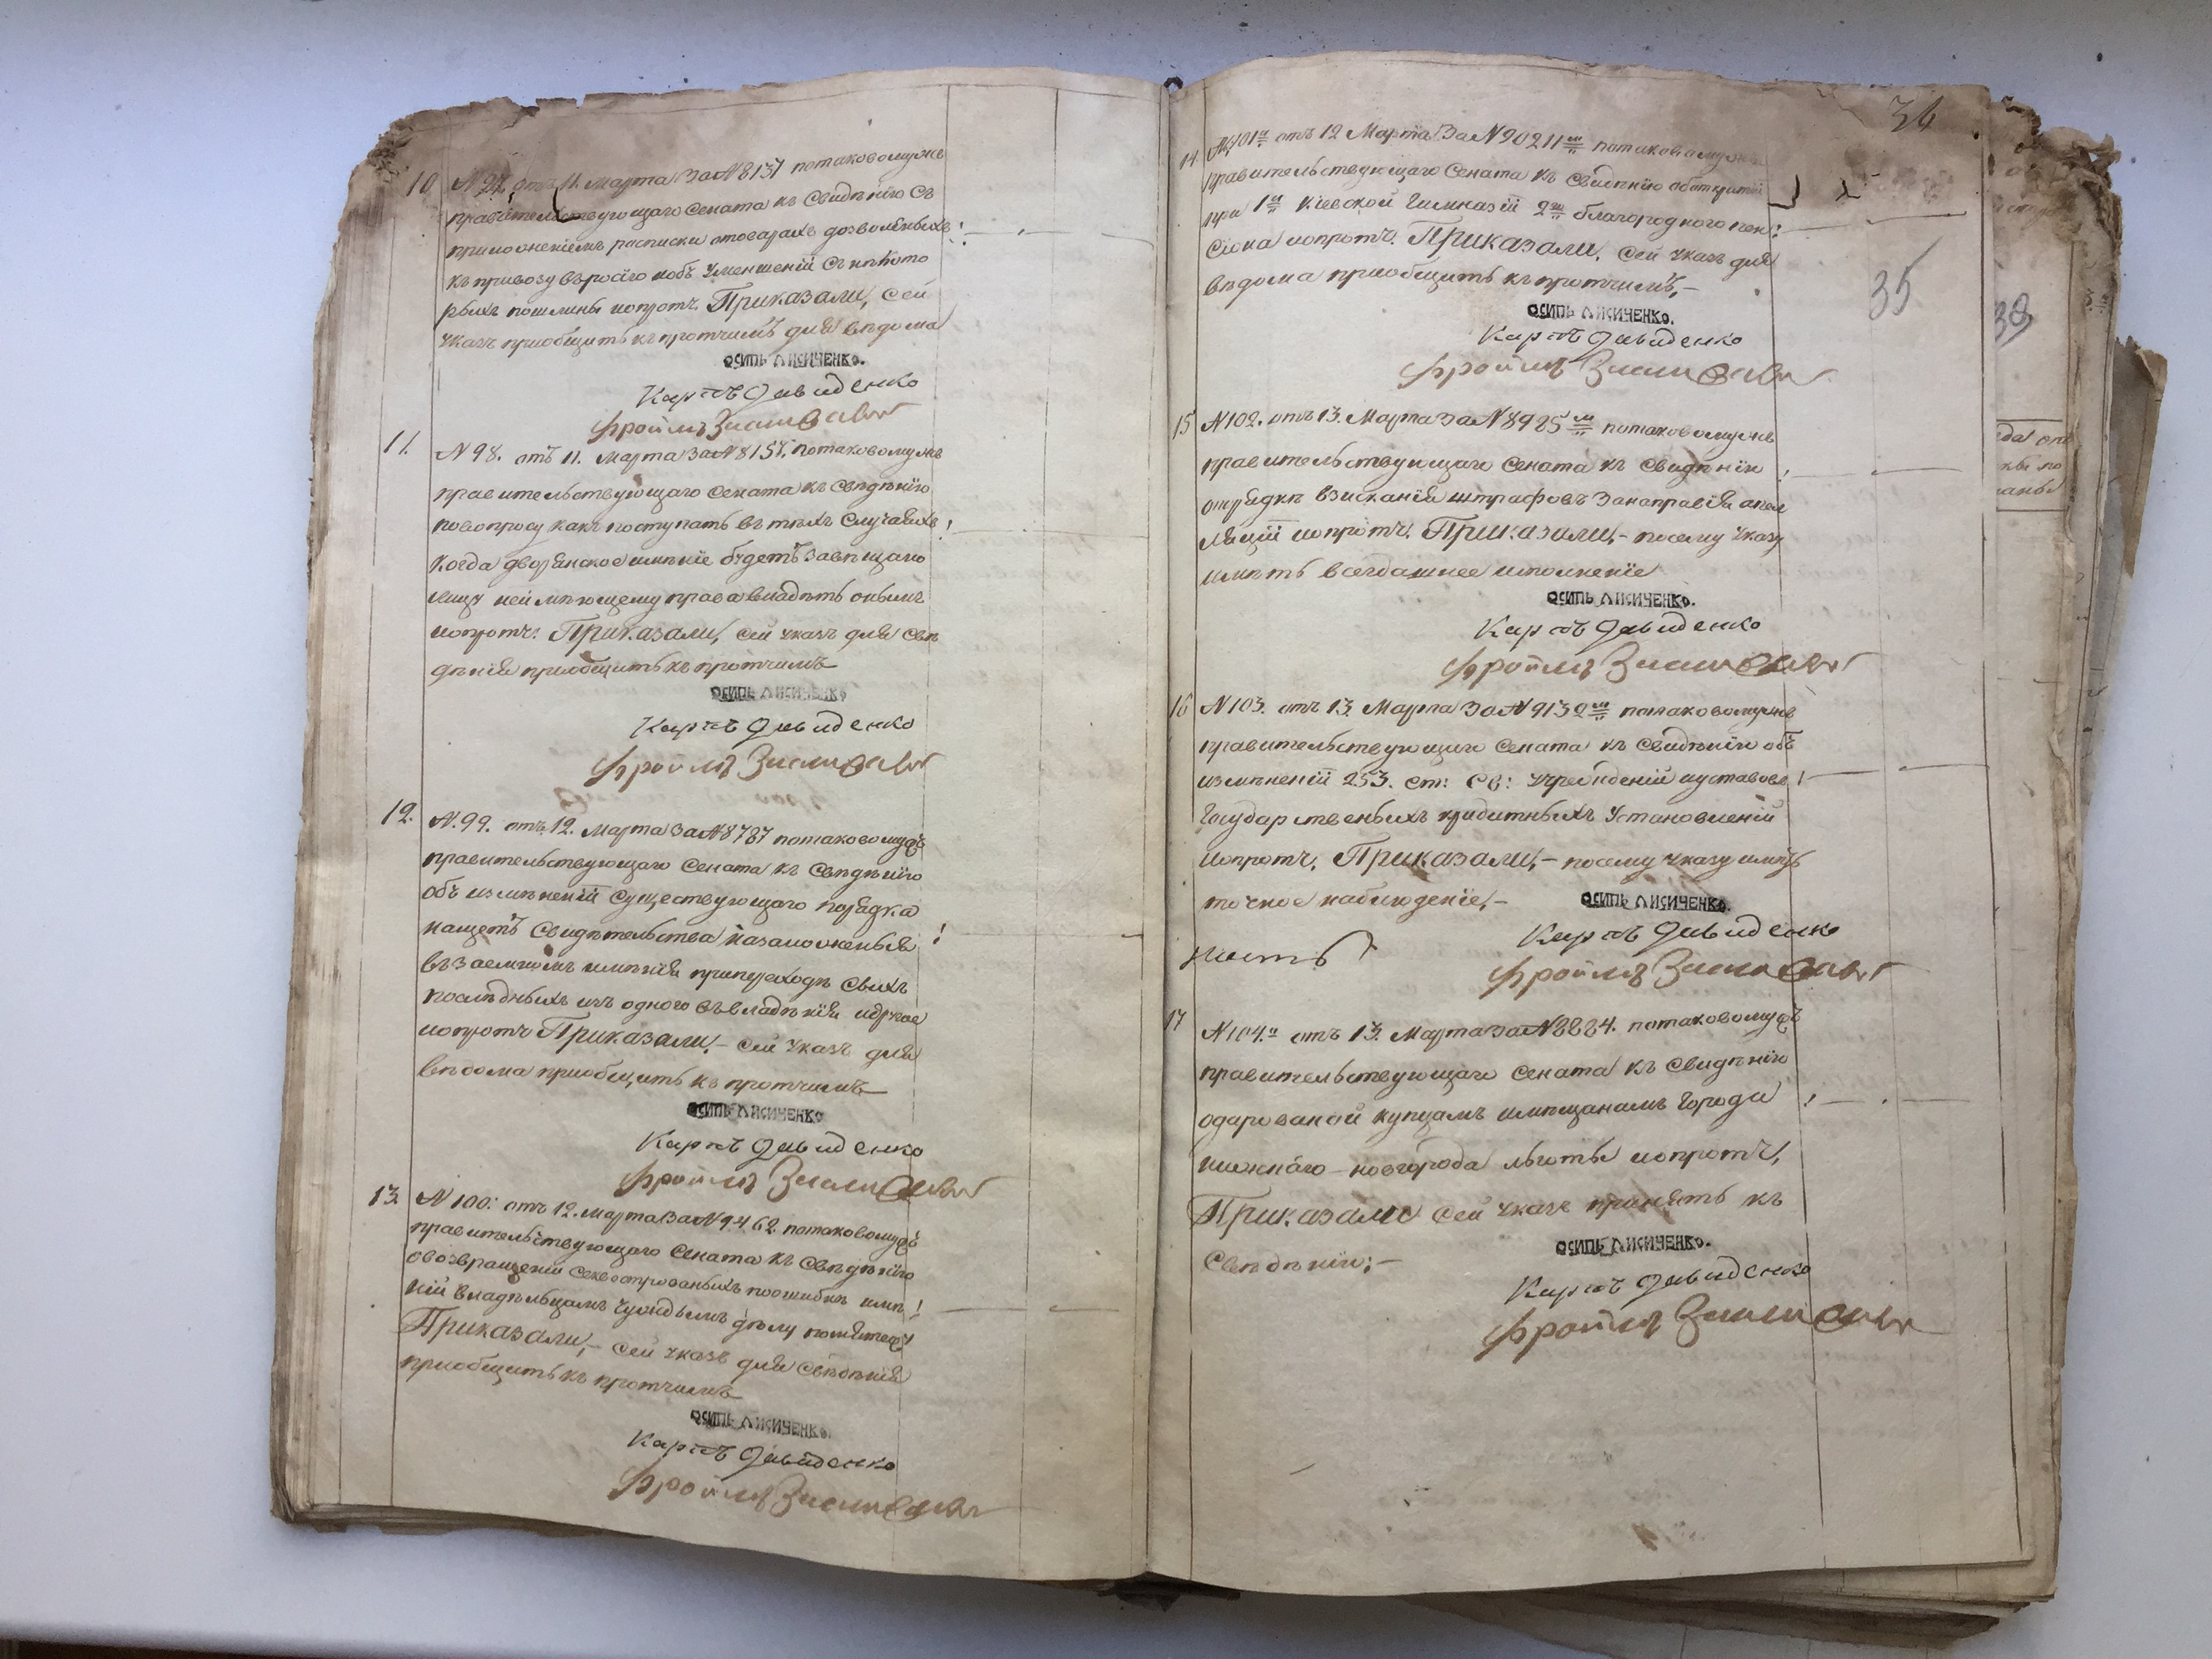 10 N 97. отъ 11. Марта За N 8137 потаковомужъ
правительствующаго Сената къ Свидѣнію Съ
приложеніемъ росписки отоварахъ дозволѣныхъ
къ привозу въ росію иобъ Уменшеніи Съ нѣкото
рыхъ пошлины ипротч. Приказали, Сей
Указъ приобщить къ протчимъ для вѣдома
ОСИПЬ ЛИСИЧЕНКО.
Карпъ Давиденко
11. N 98. отъ 11. Марта За N 8157. потаковомужъ
правительствующаго Сената къ Свѣдѣнію
повопросу какъ поступать въ тѣхъ Случаяхъ
Когда дворянское имѣніе будетъ завѣщано
лицу неимѣющему права владѣть онымъ
ипротч: Приказали, Сей Указъ для Свѣ
дѣнія приобщить къ протчимъ
ОСИПЬ ЛИСИЧЕНКО
Карпъ Давиденко
12. N. 99. отъ 12. Марта За N 8787 потаковомуже
правительствующаго Сената къ Свѣдѣнію
объ измѣненіи Существующаго порядка
нащетъ Свидѣтельства
въ имѣнія припереходѣ Сихъ
послѣдныхъ изъ одного въ владѣнія идругое
ипротч Приказали, – Сей Указъ для
вѣдома приобщить къ протчимъ
ОСИПЬ ЛИСИЧЕНКО
Карпъ Давиденко
13. N 100: отъ 12. Марта За N 9462. потаковомуже
правительствующаго Сената къ Свѣдѣнію
овозвращеніи Секвострованыхъ поошибкѣ имѣ
ній владѣльцамъ Чуждымъ дѣлу
Приказали, – Сей Указъ для Свѣдѣнія
приобщить къ протчимъ
ОСИПЬ ЛИСИЧЕНКО.
Карпъ Давиденко
34
35
14. N 101й отъ 12 Марта За N 90211м потаковомужъ
правительствующаго Сената къ Свидѣнію оботкрытіи
при 1й Кіевской Гимназіи 2го благородного пен
сіона ипротч. Приказали, Сей Указъ для
вѣдома приобщить къ протчимъ, –
ОСИПЬ ЛИСИЧЕНКО.
Карпъ Давиденко
15 N 102. отъ 13. Марта За N 8925м потаковомужъ
правительствующаго Сената къ Свидѣнію
опорядкѣ взисканія штрафовъ апел
ляціи ипротч. Приказали, – посему Указу
имѣть всегдашнее исполненіе
ОСИПЬ ЛИСИЧЕНКО.
Карпъ Давиденко
16 N 103. отъ 13. Марта За N 9132м потаковомужъ
правительствующаго Сената къ Свидѣнію объ
измѣненіи 253. ст: Св: Учрежденій иуставовъ
Государственыхъ кридитныхъ Установленій
ипротч. Приказали, – посему Указу имѣть
точное наблюденіе, –
ОСИПЬ ЛИСИЧЕНКО.
Карпъ Давиденко
17 N 104.й отъ 13. Марта За N 8884. потаковомуже
правительствующаго Сената къ Свидѣнію
одарованой купцамъ имѣщанамъ Города
нижнаго – новгорода льготы ипротч,
Приказали Сей Указъ принять къ
Свѣдѣнію; –
ОСИПЬ ЛИСИЧЕНКО.
Карпъ Давиденко